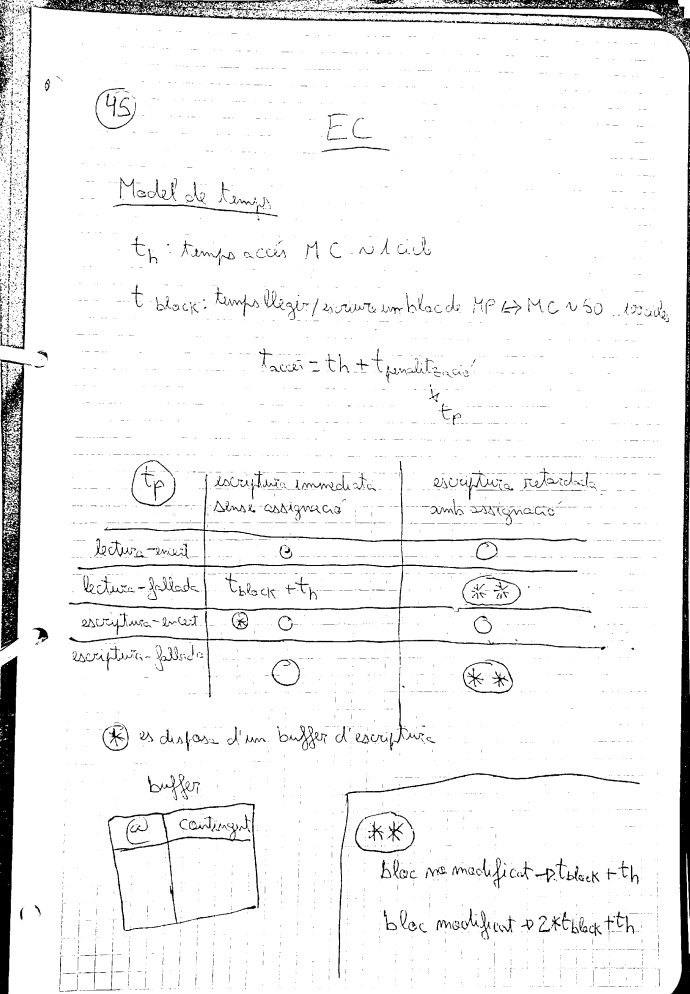 45
EC
Model de temps
th: temps accés MC ~ 1 cicle
t block: temps llegir/escriure un bloc de MP ↔ MC ~ 50..100 cicles
taccés = th + tpenalització
↓
tp
tp | escriptura immediata sense assignació | escriptura retardada amb assignació
lectura-encert | 0 | 0
lectura-fallada | tblock + th | **
escriptura-encert | * 0 | 0
escriptura-fallada | 0 | **
* es disposa d'un buffer d'escriptura
buffer
@ | contingut
**
bloc no modificat → tblock + th
bloc modificat → 2*tblock + th